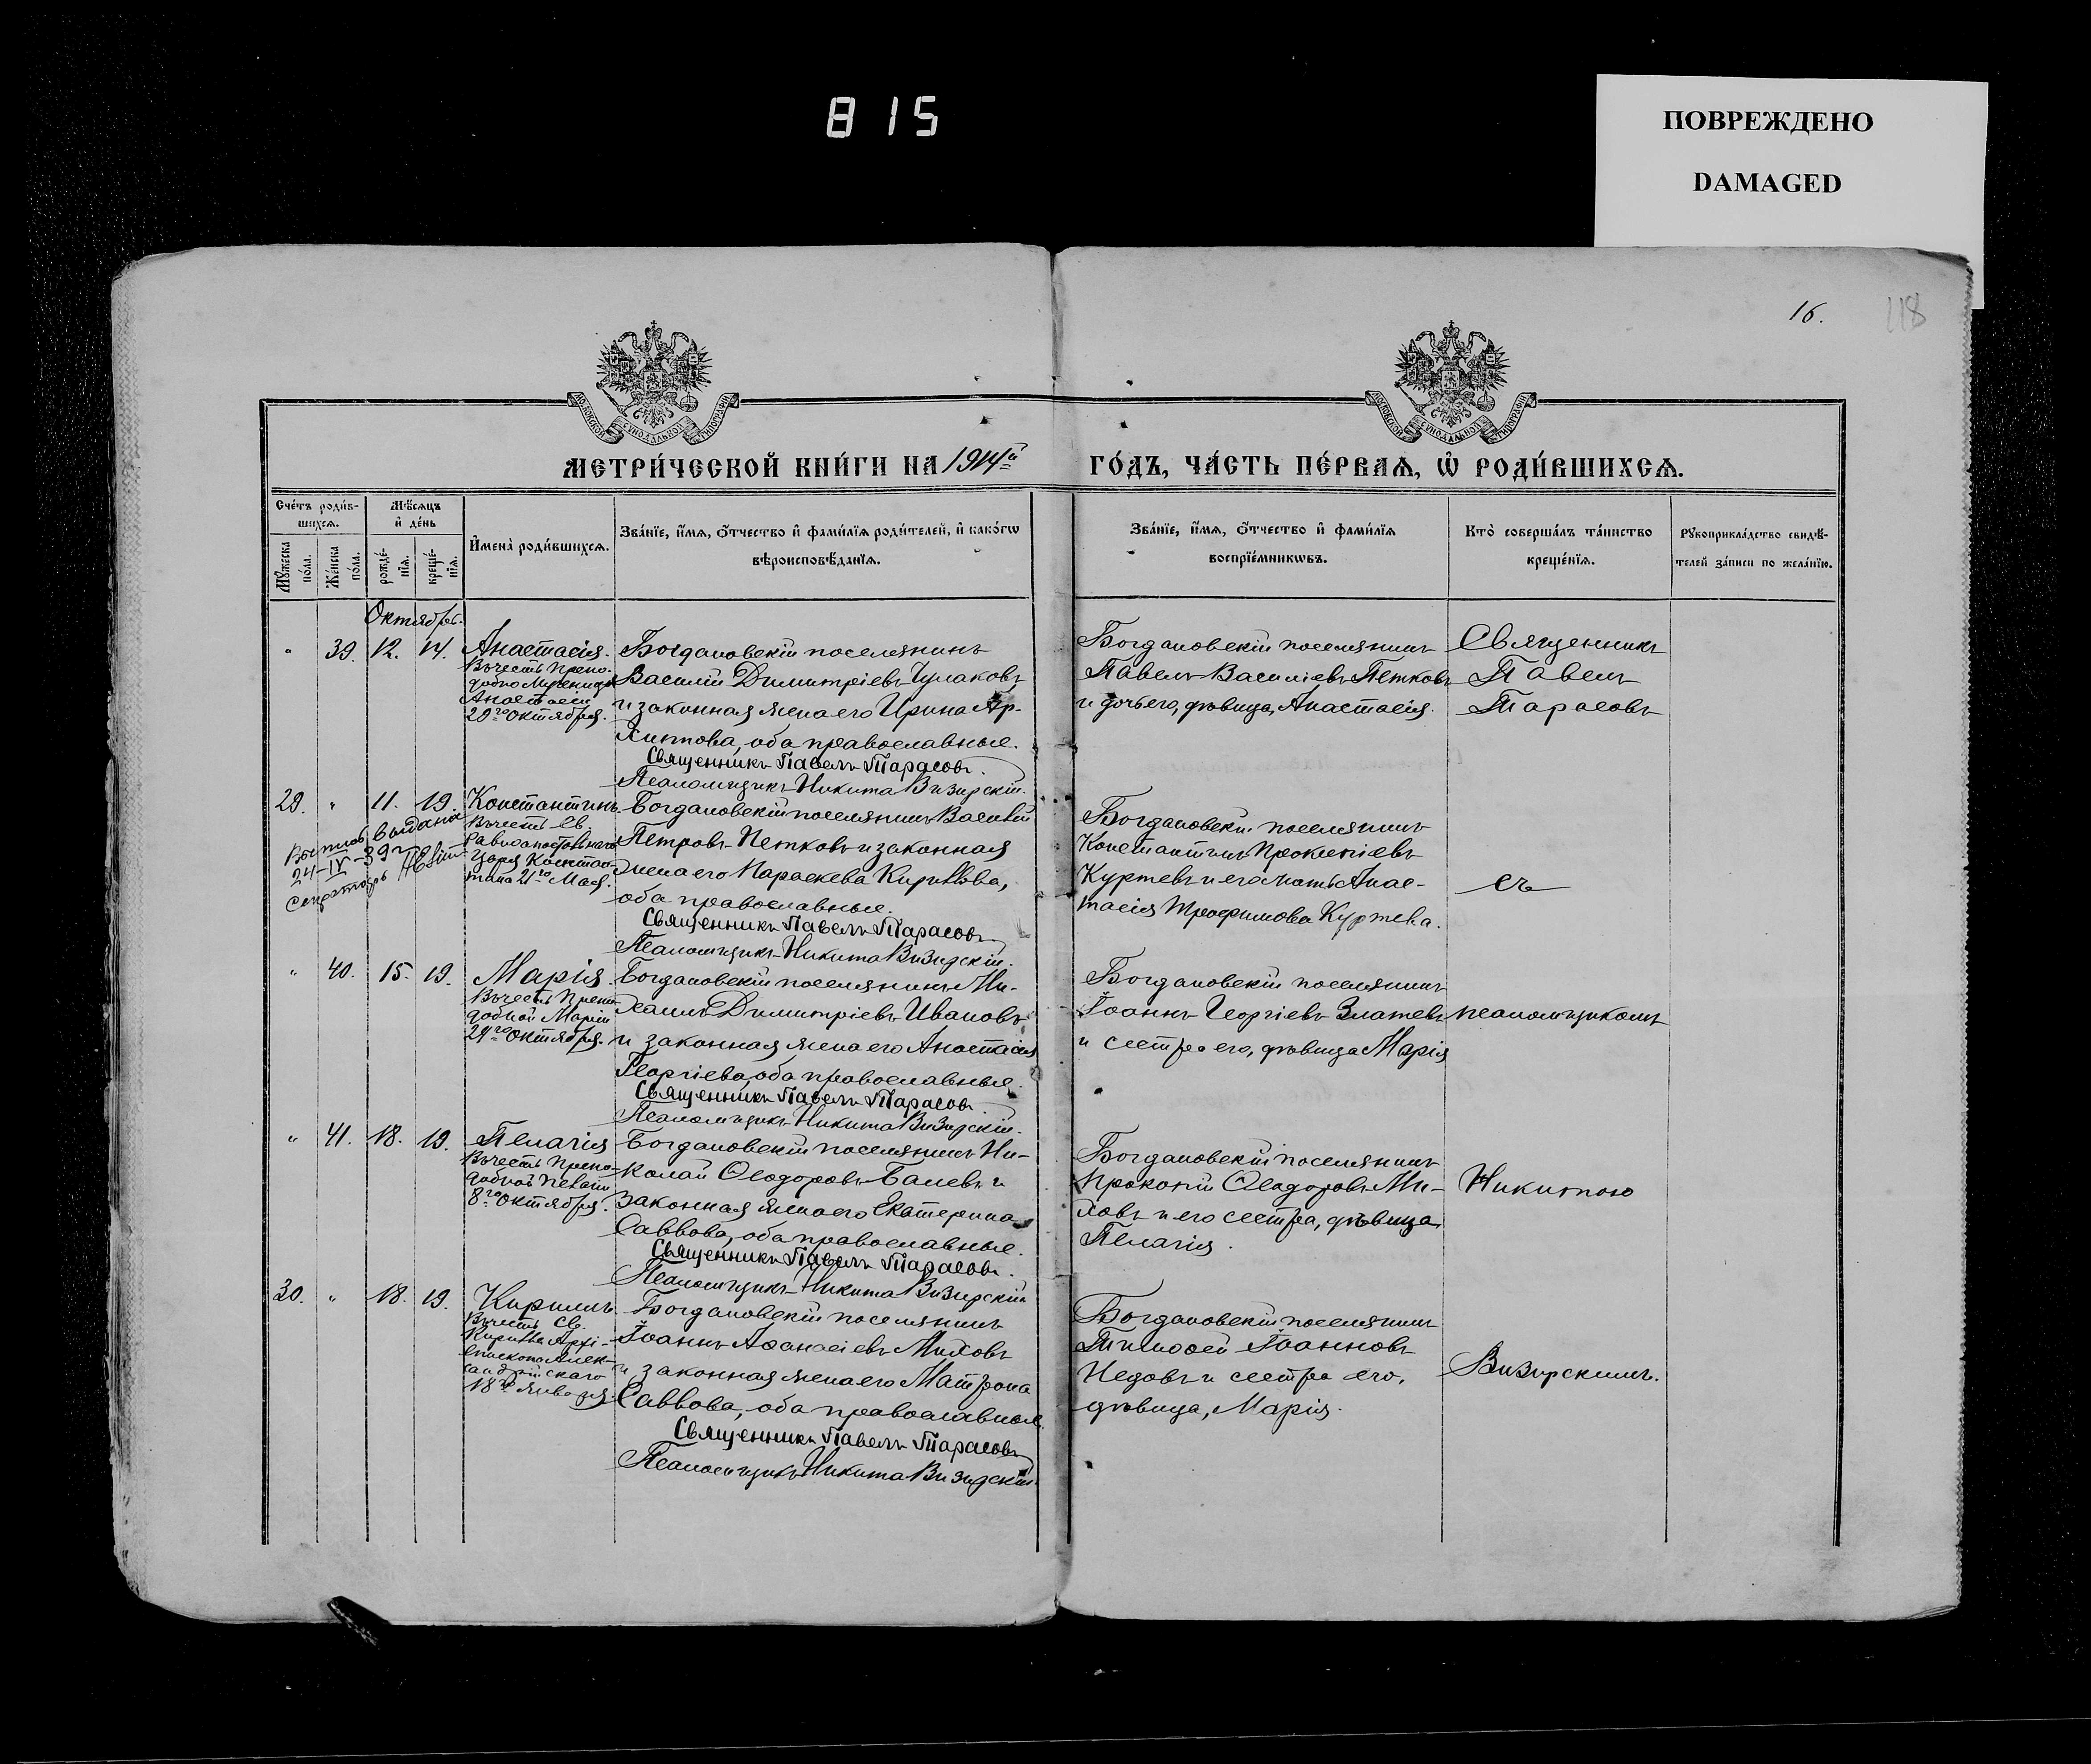 815
ПОВРЕЖДЕНО
DAMAGED
16.
118
МЕТРИ́ЧЕСКОЙ КНИ́ГИ НА 1914й
ГО́ДЪ, ЧА́СТЬ ПЕ́РВАѦ, Ѡ҆ РОДИ́ВШИХСѦ.
Сче́тъ роди́в-
шихсѧ.
Мꙋ́жеска
по́ла.
Же́нска
по́ла.
Мѣ́сѧцъ
и҆ де́нь
рожде́-
нїѧ.
креще́-
нїѧ.
И҆мена̀ роди́вшихсѧ.
Зва́нїе, и҆́мѧ, ѻ҆́тчество и҆ фами́лїѧ роди́телей, и҆ како́гѡ
вѣроисповѣ́данїѧ.
Зва́нїе, и҆́мѧ, ѻ҆́тчество и҆ фами́лїѧ
воспрїе́мникѡвъ.
Кто̀ соверша́лъ та́инство
креще́нїѧ.
Рꙋкоприкла́дство свидѣ́-
телей за́писи по жела́нїю.
Октябрь.
" 39. 12. 14. Анастасія.
Въ честь Препо-
добно Мученицы
Анастасіи
29го Октября.
Богдановскій поселянинъ
Василій Димитріевъ Чулаковъ
и законная жена его Ирина Ар-
хипова, оба православные.
Священникъ Павелъ Тарасовъ.
Псаломщикъ Никита Визирскій.
Богдановскій поселянинъ
Павелъ Василіевъ Петковъ
и дочь его, дѣвица, Анастасія.
Священникъ
Павелъ
Тарасовъ
29. " 11. 19. Константинъ
Выпись выдана
24-IV-39 г.
Секретарь
Въ честь Св.
Равноапостольнаго
Царя Констан-
тина 21го Мая.
Богдановскій поселянинъ Василій
Петровъ Петковъ и законная
жена его Параскева Кириллова,
оба православные.
Священникъ Павелъ Тарасовъ
Псаломщикъ Никита Визирскій.
Богдановскій поселянинъ
Константинъ Прокопіевъ
Куртевъ и его мать Анас-
тасія Трофимова Куртева.
съ
" 40. 15. 19. Марія.
Въ честь Препо-
добной Маріи
29го Октября.
Богдановскій поселянинъ Ми-
хаилъ Димитріевъ Ивановъ
и законная жена его Анастасія
Георгіева, оба православные.
Священникъ Павелъ Тарасовъ.
Псаломщикъ Никита Визирскій.
Богдановскій поселянинъ
Іоаннъ Георгіевъ Златевъ
и сестра его, дѣвица Марія
псаломщикомъ
" 41. 18. 19. Пелагія
Въ честь Препо-
добной Пелагіи
8го Октября.
Богдановскій поселянинъ Ни-
колай Ѳеодоровъ Баневъ и
законная жена его Екатерина
Саввова, оба православные.
Священникъ Павелъ Тарасовъ.
Псаломщикъ Никита Визирскій
Богдановскій поселянинъ
Прокопій Ѳеодоровъ Ми-
ховъ и его сестра, дѣвица,
Пелагія.
Никитою
30. " 18. 19. Кириллъ
Въ честь Св.
Кирилла Архі-
епископа Алек-
сандрійскаго
18го Января.
Богдановскій поселянинъ
Іоаннъ Аѳанасіевъ Миховъ
и законная жена его Матрона
Саввова, оба православные.
Священникъ Павелъ Тарасовъ
Псаломщикъ Никита Визирскій.
Богдановскій поселянинъ
Тимоѳей Іоанновъ
Недовъ и сестра его,
дѣвица, Марія.
Визирскимъ.